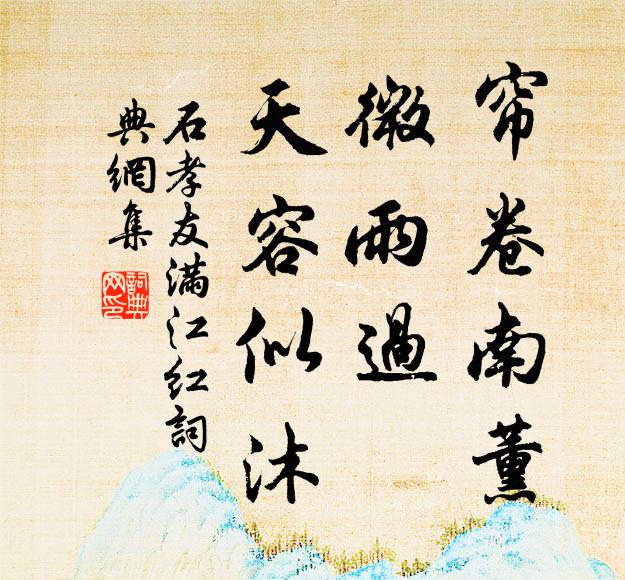 帘卷南薰
微雨過
天容似沐
石孝友满江红詞
典網集
詞典网印